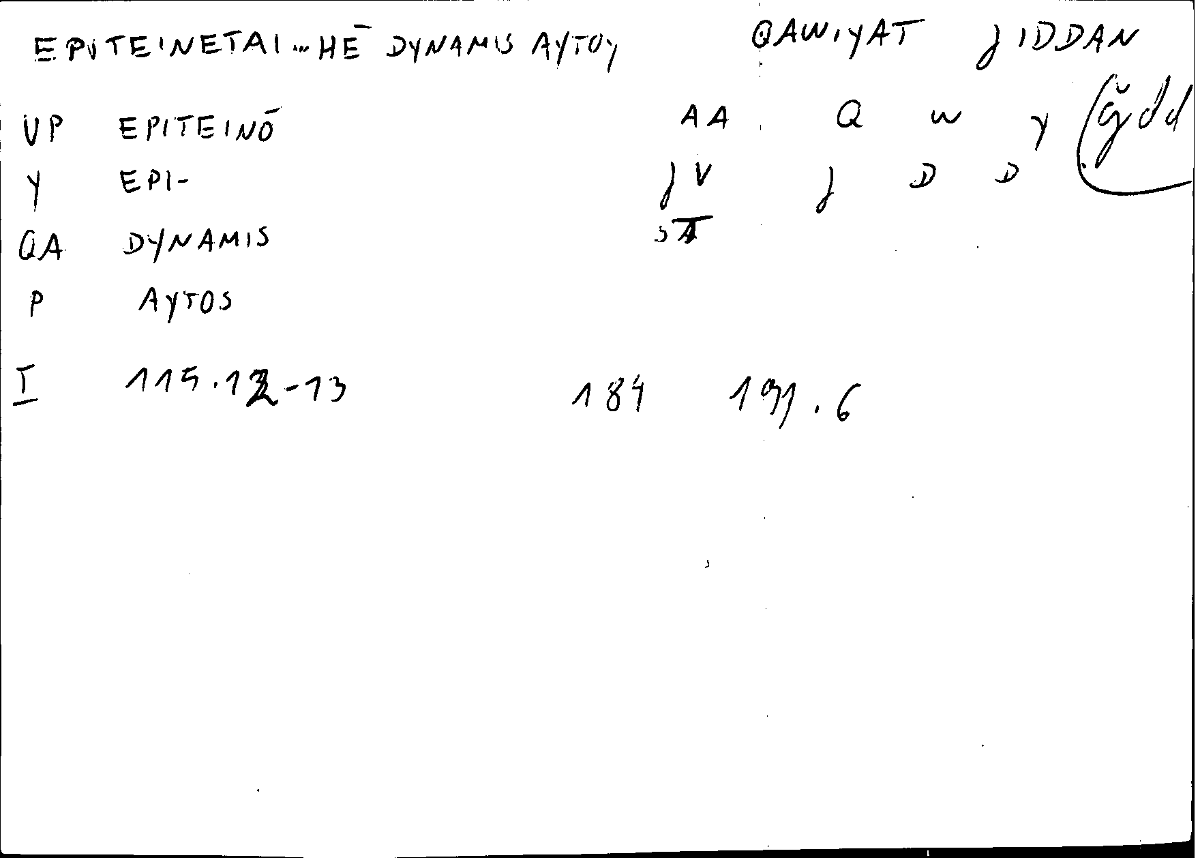 EPITEINETAI...HĒ DYNAMIS AYTOY QAWIYAT JIDDAN
VP EPITEINŌ AA Q W Y ğdd
Y EPI- JV J D D
QA DYNAMIS
P AYTOS
I 115.12-13 184 191.6